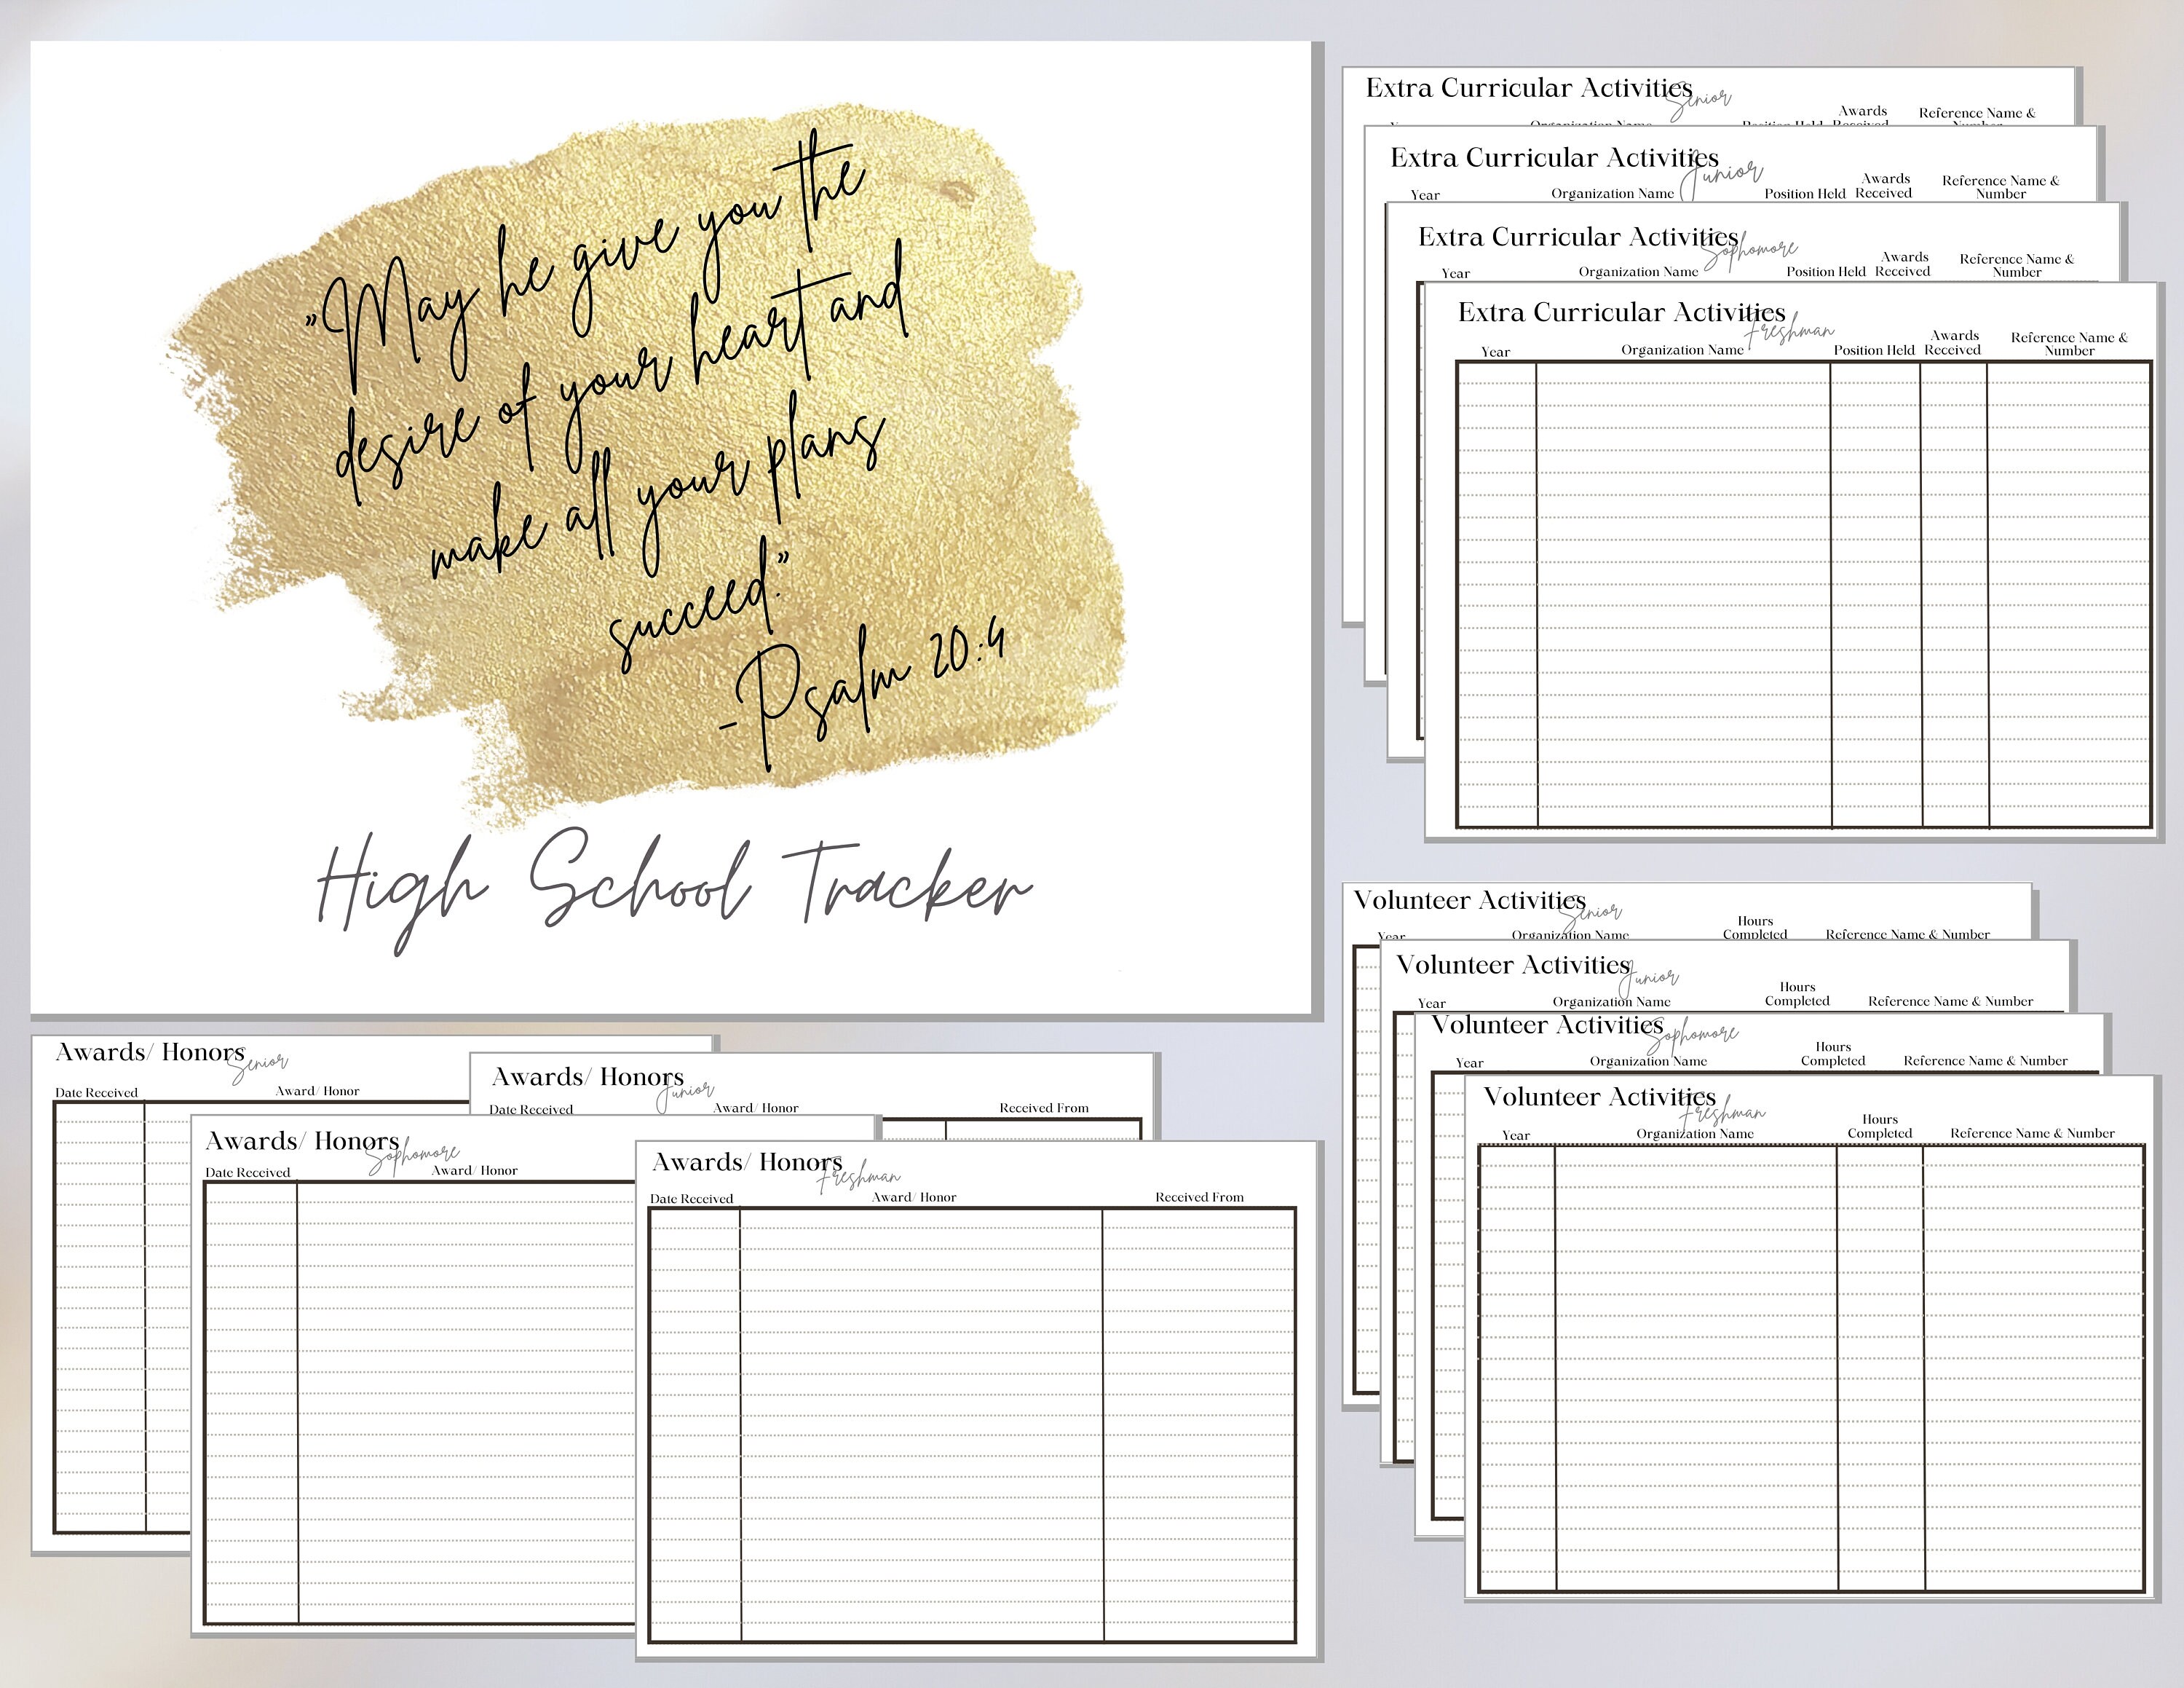 "May he give you the
desire of your heart and
make all your plans
succeed."
-Psalm 20:4
High School Tracker
Extra Curricular Activities
Senior
Organization Name Position Held Awards Received Reference Name & Number
Extra Curricular Activities
Junior
Year Organization Name Position Held Awards Received Reference Name & Number
Extra Curricular Activities
Sophomore
Year Organization Name Position Held Awards Received Reference Name & Number
Extra Curricular Activities
Freshman
Year Organization Name Position Held Awards Received Reference Name & Number
Volunteer Activities
Senior
Year Organization Name Hours Completed Reference Name & Number
Volunteer Activities
Junior
Year Organization Name Hours Completed Reference Name & Number
Volunteer Activities
Sophomore
Year Organization Name Hours Completed Reference Name & Number
Volunteer Activities
Freshman
Year Organization Name Hours Completed Reference Name & Number
Awards/ Honors
Senior
Date Received Award/ Honor
Awards/ Honors
Junior
Date Received Award/ Honor Received From
Awards/ Honors
Sophomore
Date Received Award/ Honor
Awards/ Honors
Freshman
Date Received Award/ Honor Received From